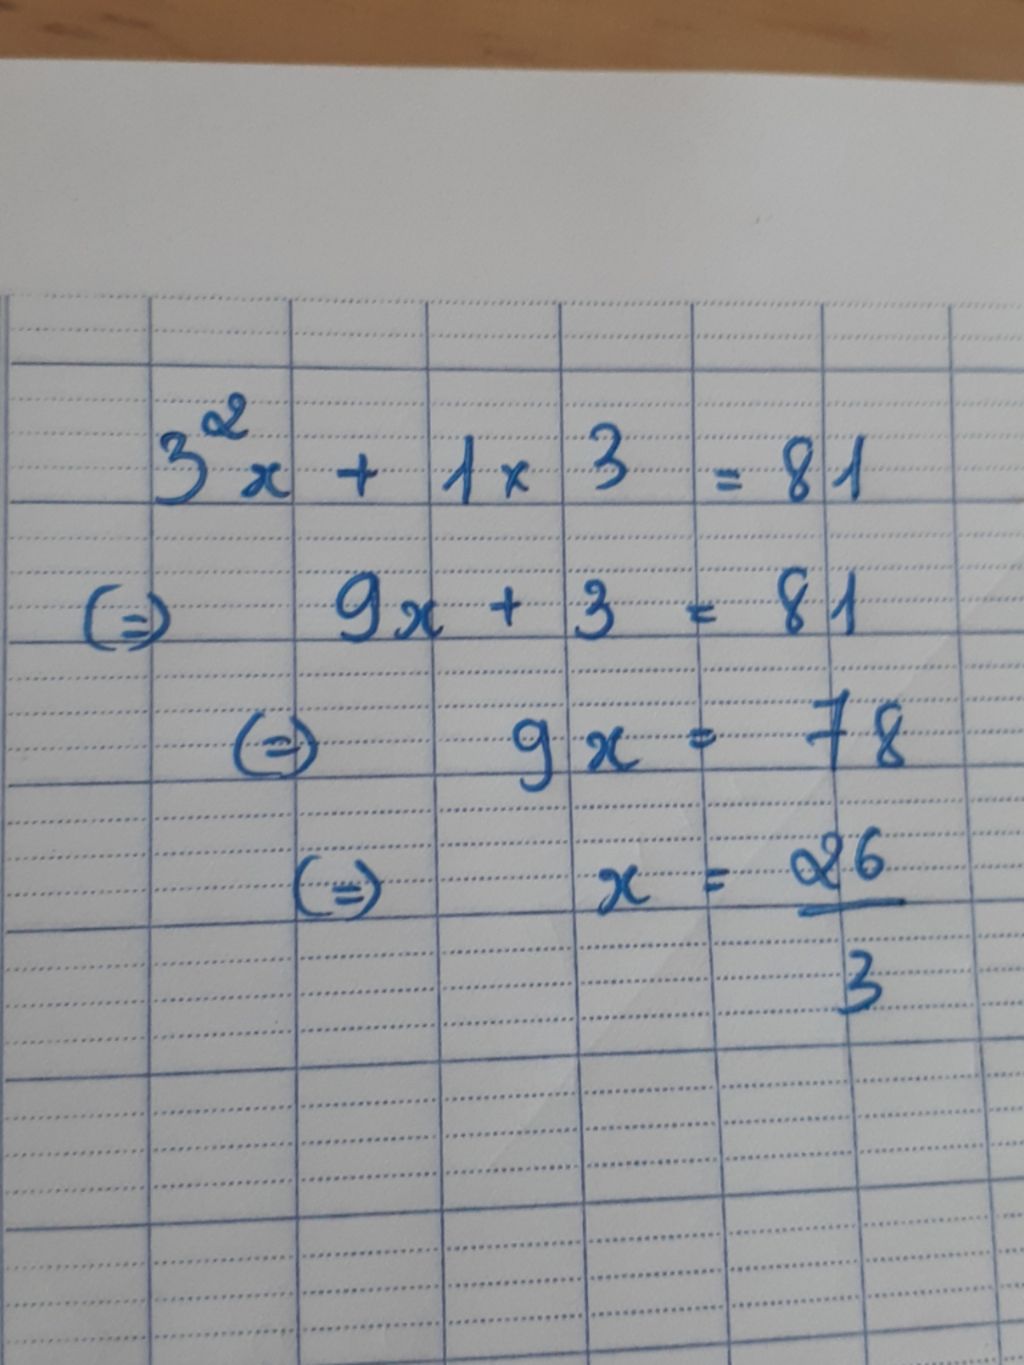 3²x + 1 × 3 = 81
(=) 9x + 3 = 81
(=) 9x = 78
(=) x = 26
3